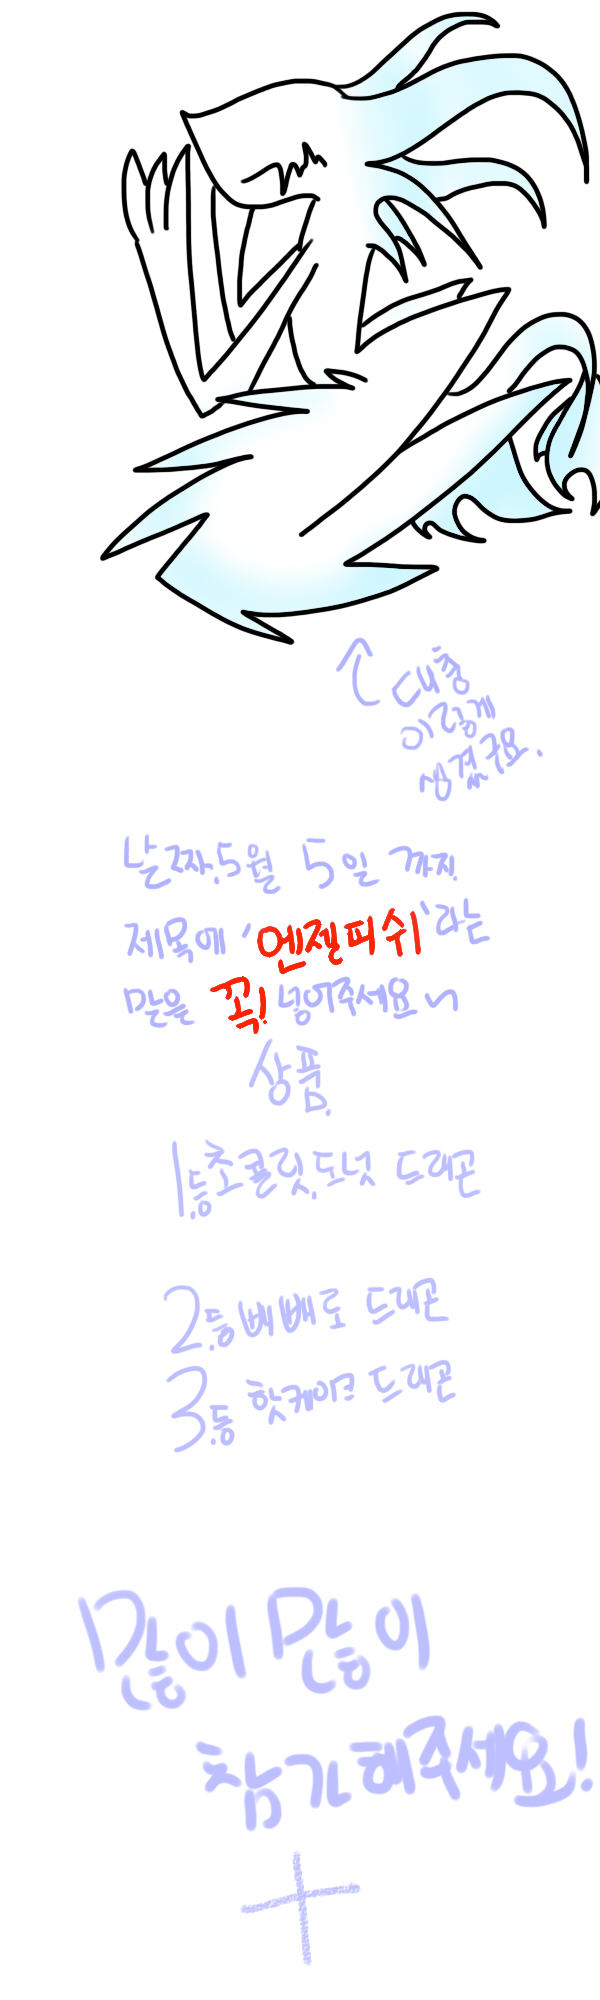 대충
이렇게
생겼구요.
날짜.5월 5일 까지.
제목에 '엔젤피쉬'라는
말을 꼭! 넣어주세요~
상품.
1.등 초콜릿.도넛 드래곤
2.등 빼빼로 드래곤
3.등 핫케이크 드래곤
많이 많이
참가해주세요!